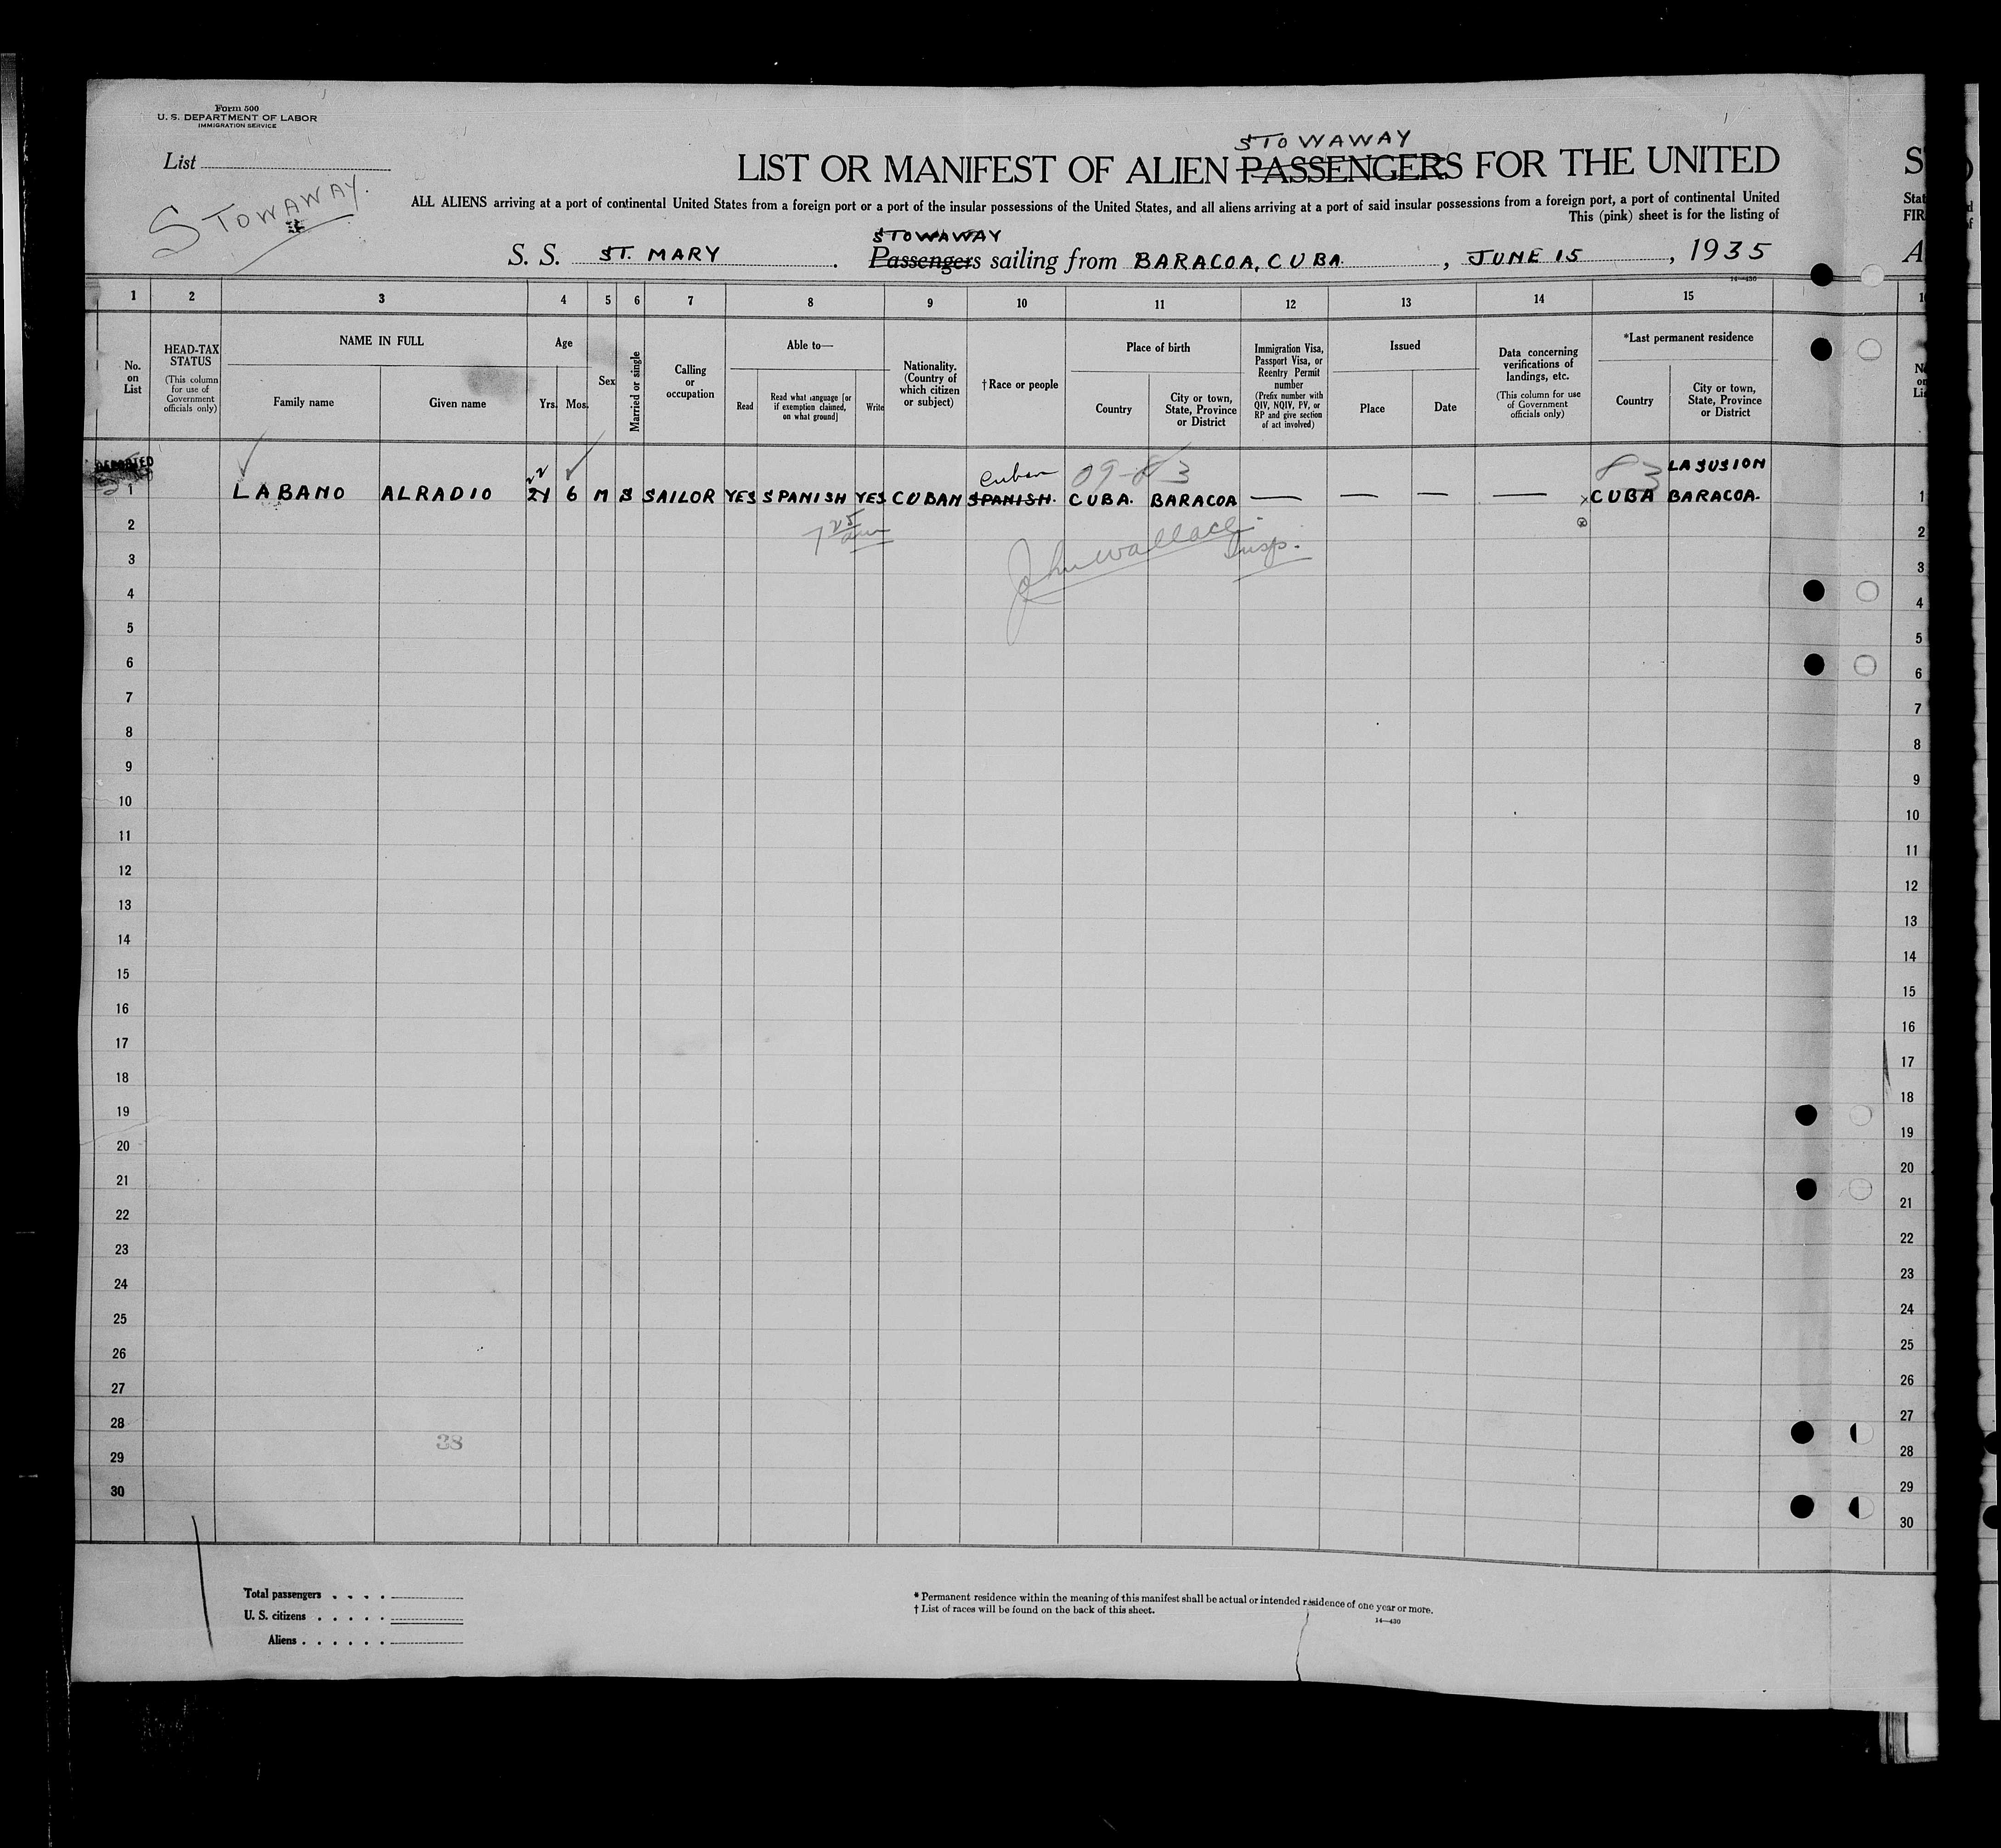 Form 500
U. S. DEPARTMENT OF LABOR
IMMIGRATION SERVICE
List
STOWAWAY.
STOWAWAY
LIST OR MANIFEST OF ALIEN PASSENGERS FOR THE UNITED
ALL ALIENS arriving at a port of continental United States from a foreign port or a port of the insular possessions of the United States, and all aliens arriving at a port of said insular possessions from a foreign port, a port of continental United
This (pink) sheet is for the listing of
STOWAWAY
S. S. ST. MARY . Passengers sailing from BARACOA, CUBA , JUNE 15 , 1935
14—430
1 2 3 4 5 6 7 8 9 10 11 12 13 14 15
No. on List
HEAD-TAX STATUS
(This column for use of Government officials only)
NAME IN FULL
Family name
Given name
Age
Yrs. Mos.
Sex
Married or single
Calling or occupation
Able to—
Read
Read what language [or if exemption claimed, on what ground]
Write
Nationality. (Country of which citizen or subject)
†Race or people
Place of birth
Country
City or town, State, Province or District
Immigration Visa, Passport Visa, or Reentry Permit number
(Prefix number with QIV, NQIV, PV, or RP and give section of act involved)
Issued
Place
Date
Data concerning verifications of landings, etc.
(This column for use of Government officials only)
*Last permanent residence
Country
City or town, State, Province or District
DEPORTED
Cuban 09-83 83 LASUSION
1 LABANO ALRADIO 21 6 M S SAILOR YES SPANISH YES CUBAN SPANISH. CUBA. BARACOA — — — — CUBA BARACOA. 1
2 2
John Wallace Insp.
3 3
4 4
5 5
6 6
7 7
8 8
9 9
10 10
11 11
12 12
13 13
14 14
15 15
16 16
17 17
18 18
19 19
20 20
21 21
22 22
23 23
24 24
25 25
26 26
27 27
28 28
38
29 29
30 30
Total passengers . . . .
U. S. citizens . . . . .
Aliens . . . . . .
* Permanent residence within the meaning of this manifest shall be actual or intended residence of one year or more.
† List of races will be found on the back of this sheet.
14—430